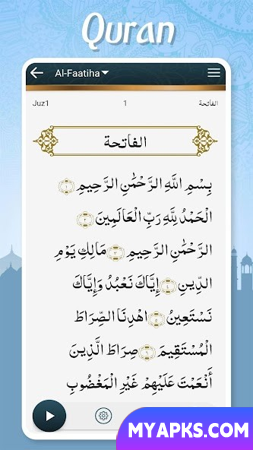 Quran
Al-Faatiha
Juz1 1 الفاتحة
الفاتحة
بِسْمِ اللَّهِ الرَّحْمَٰنِ الرَّحِيمِ ١
الْحَمْدُ لِلَّهِ رَبِّ الْعَالَمِينَ ٢
الرَّحْمَٰنِ الرَّحِيمِ ٣ مَالِكِ يَوْمِ
الدِّينِ ٤ إِيَّاكَ نَعْبُدُ وَإِيَّاكَ
نَسْتَعِينُ ٥ اهْدِنَا الصِّرَاطَ
الْمُسْتَقِيمَ ٦ صِرَاطَ الَّذِينَ
أَنْعَمْتَ عَلَيْهِمْ غَيْرِ الْمَغْضُوبِ
MYAPKS.COM